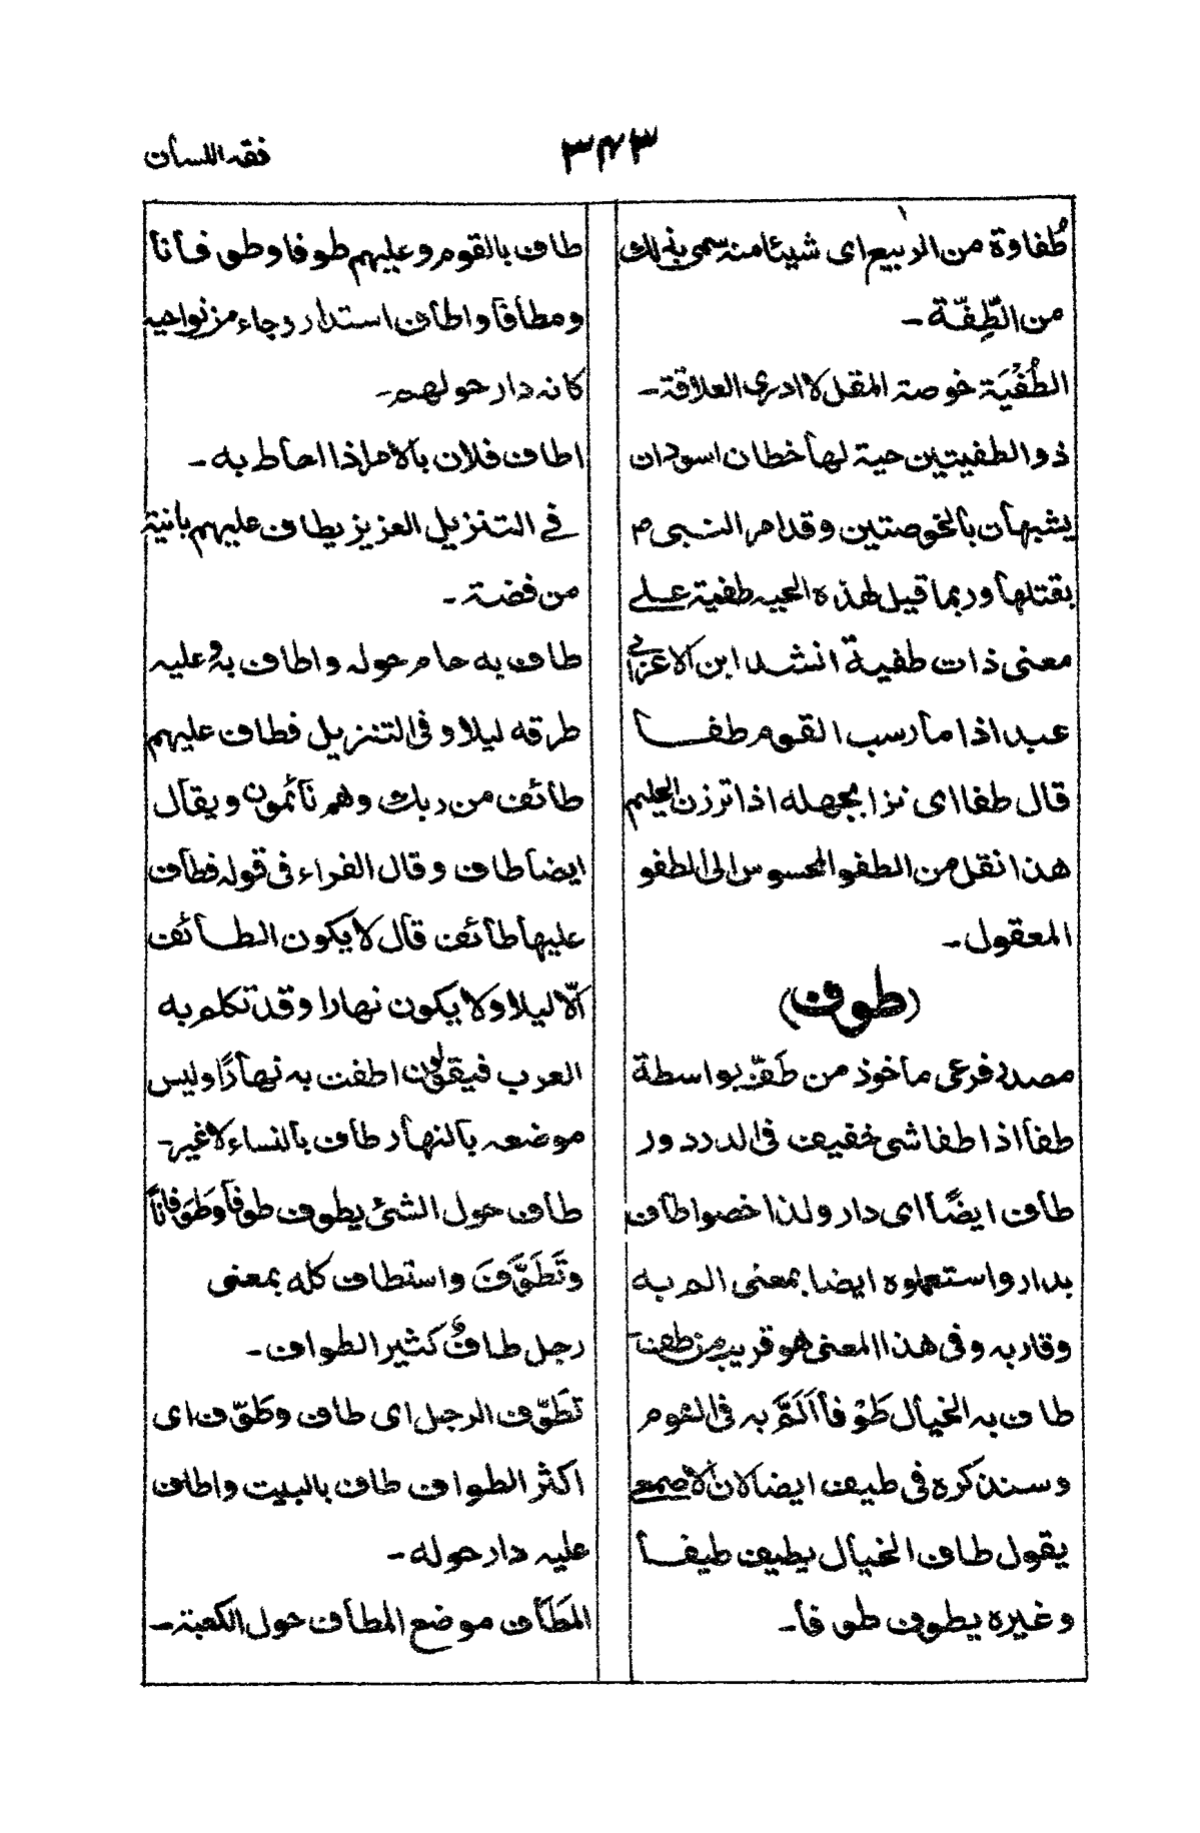 فقه اللسان
٣٤٣
طُفاوة من الربيع اى شيئا منه سمى بذلك
من الطِّفّة ـ
الطُفْيَة خوصة المقل لا ادرى العلاقة ـ
ذو الطفيتين حية لها خطان اسودان
يشبهان بالخوصتين وقد امر النبى ص
بقتلها وربما قيل لهذه الحيه طفية على
معنى ذات طفية انشد ابن الاعرابى
عبد اذا ما رسب القوم طفا
قال طفا اى نزا بجهله اذا ترزن الحليم
هذا نقل من الطفو المحسوس الى الطفو
المعقول ـ
(طوف)
مصدر فرعى ماخوذ من طَفّ بواسطة
طفا اذا طفا شى خفيف فى الدردور
طاف ايضًا اى دار ولذا خصوا طاف
بدار واستعملوه ايضا بمعنى الم به
وقاربه وفى هذا المعنى هو قريب من طفّ
طاف به الخيال طَوْفا اَلَمَّ به فى النوم
وسنذكره فى طيف ايضا لان الاصمعى
يقول طاف الخيال يطيف طيفا
وغيره يطوف طوفا ـ
طاف بالقوم وعليهم طوفا وطوفانا
ومطافا واطاف استدار وجاء من نواحيه
كانه دار حولهم ـ
اطاف فلان بالامر اذا احاط به ـ
فى التنزيل العزيز يطاف عليهم بانية
من فضة ـ
طاف به حام حوله واطاف به وعليه
طرقه ليلا و فى التنزيل فطاف عليهم
طائف من ربك وهم نائمون ويقال
ايضا طاف وقال الفراء فى قوله فطاف
عليها طائف قال لا يكون الطائف
الّا ليلا ولا يكون نهارا وقد تكلم به
العرب فيقولون اطفت به نهارًا وليس
موضعه بالنهار طاف بالنساء لا غير ـ
طاف حول الشئ يطوف طوفًا وطَوَفانًا
وتَطَوَّفَ واستطاف كله بمعنى
رجل طافٌ كثير الطواف ـ
تَطَوّف الرجل اى طاف وطَوّف اى
اكثر الطواف طاف بالبيت واطاف
عليه دار حوله ـ
المَطَاف موضع المطاف حول الكعبة ـ